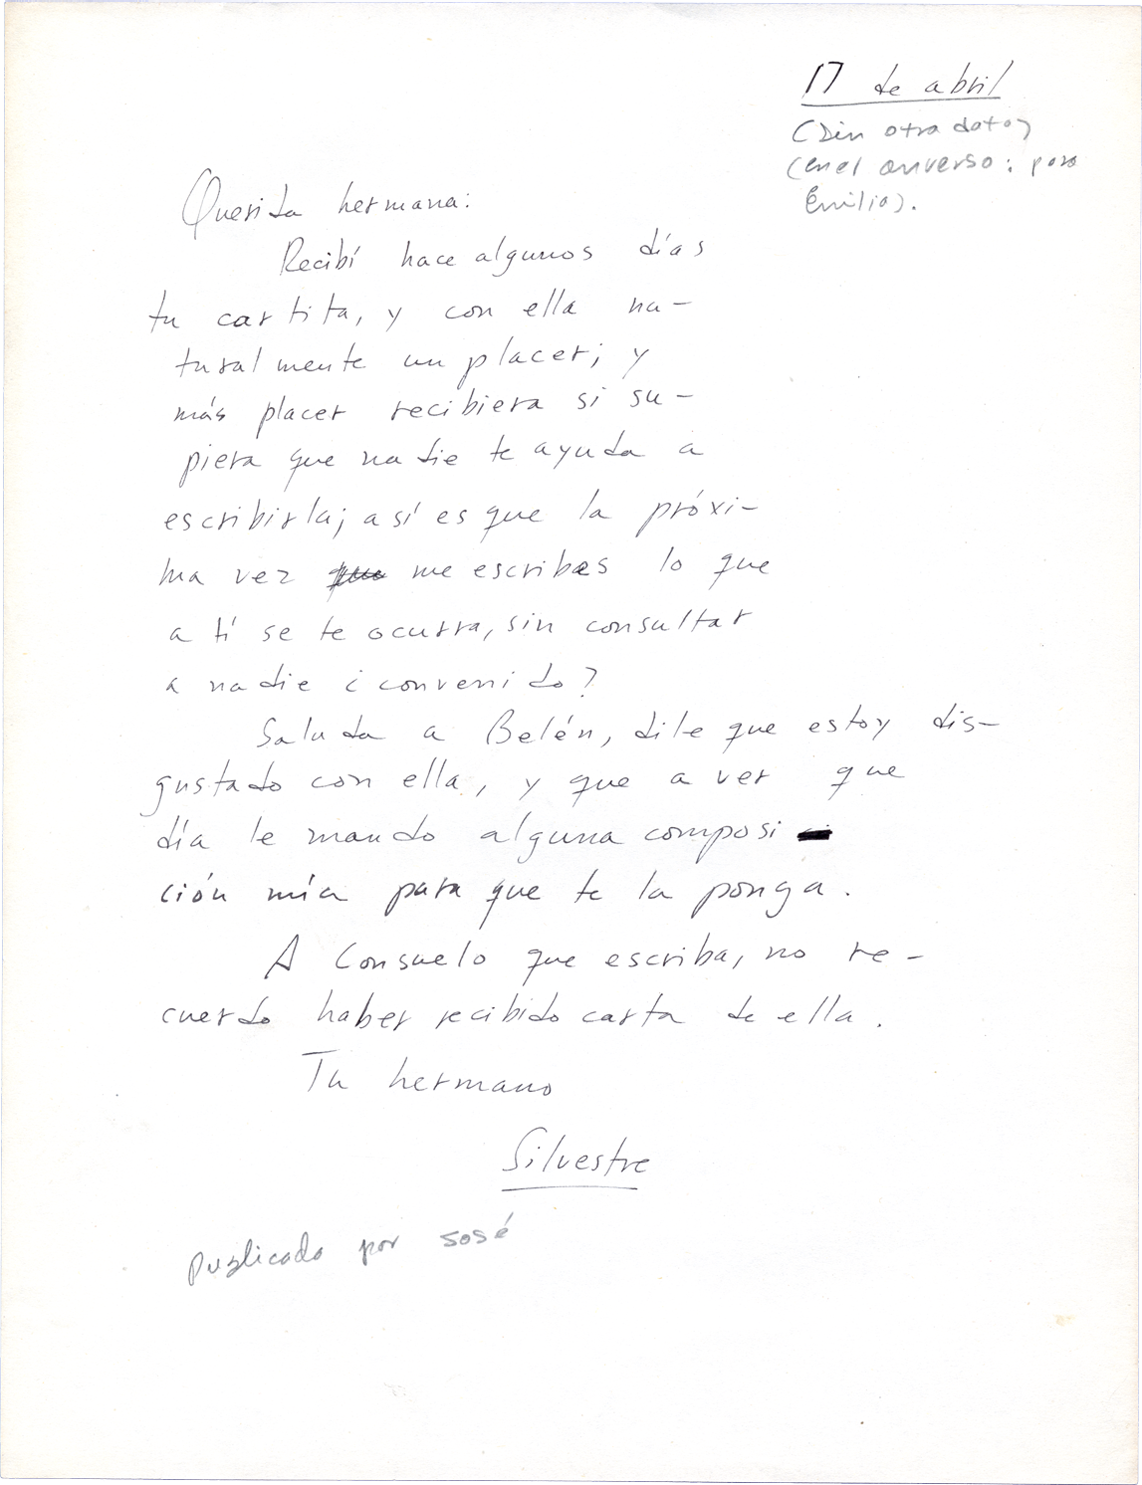 17 de abril
(Sin otro dato)
(en el anverso: para
Emilia).
Querida hermana:
Recibí hace algunos días
tu cartita, y con ella na-
turalmente un placer; y
más placer recibiera si su-
piera que nadie te ayuda a
escribirla; así es que la próxi-
ma vez que me escribas lo que
a tí se te ocurra, sin consultar
a nadie ¿convenido?
Saluda a Belén, dile que estoy dis-
gustado con ella, y que a ver que
día le mando alguna composi
ción mía para que te la ponga.
A Consuelo que escriba, no re-
cuerdo haber recibido carta de ella.
Tu hermano
Silvestre
Publicado por José